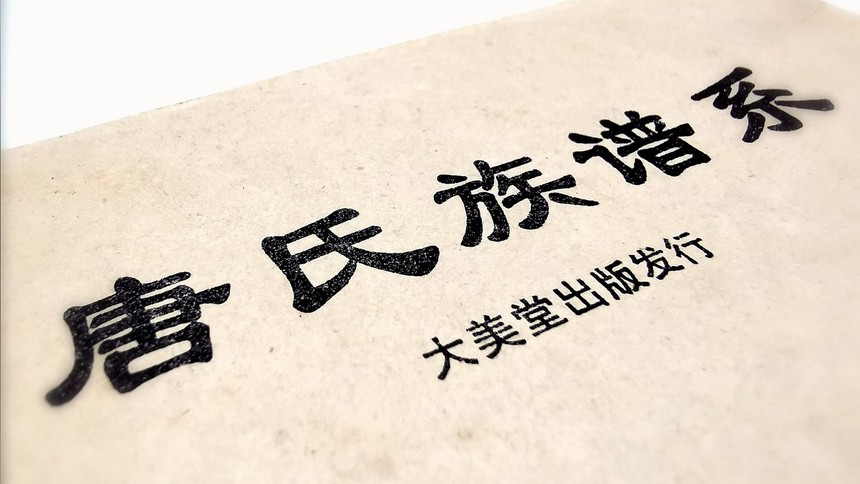 唐氏族谱系
大美堂出版发行